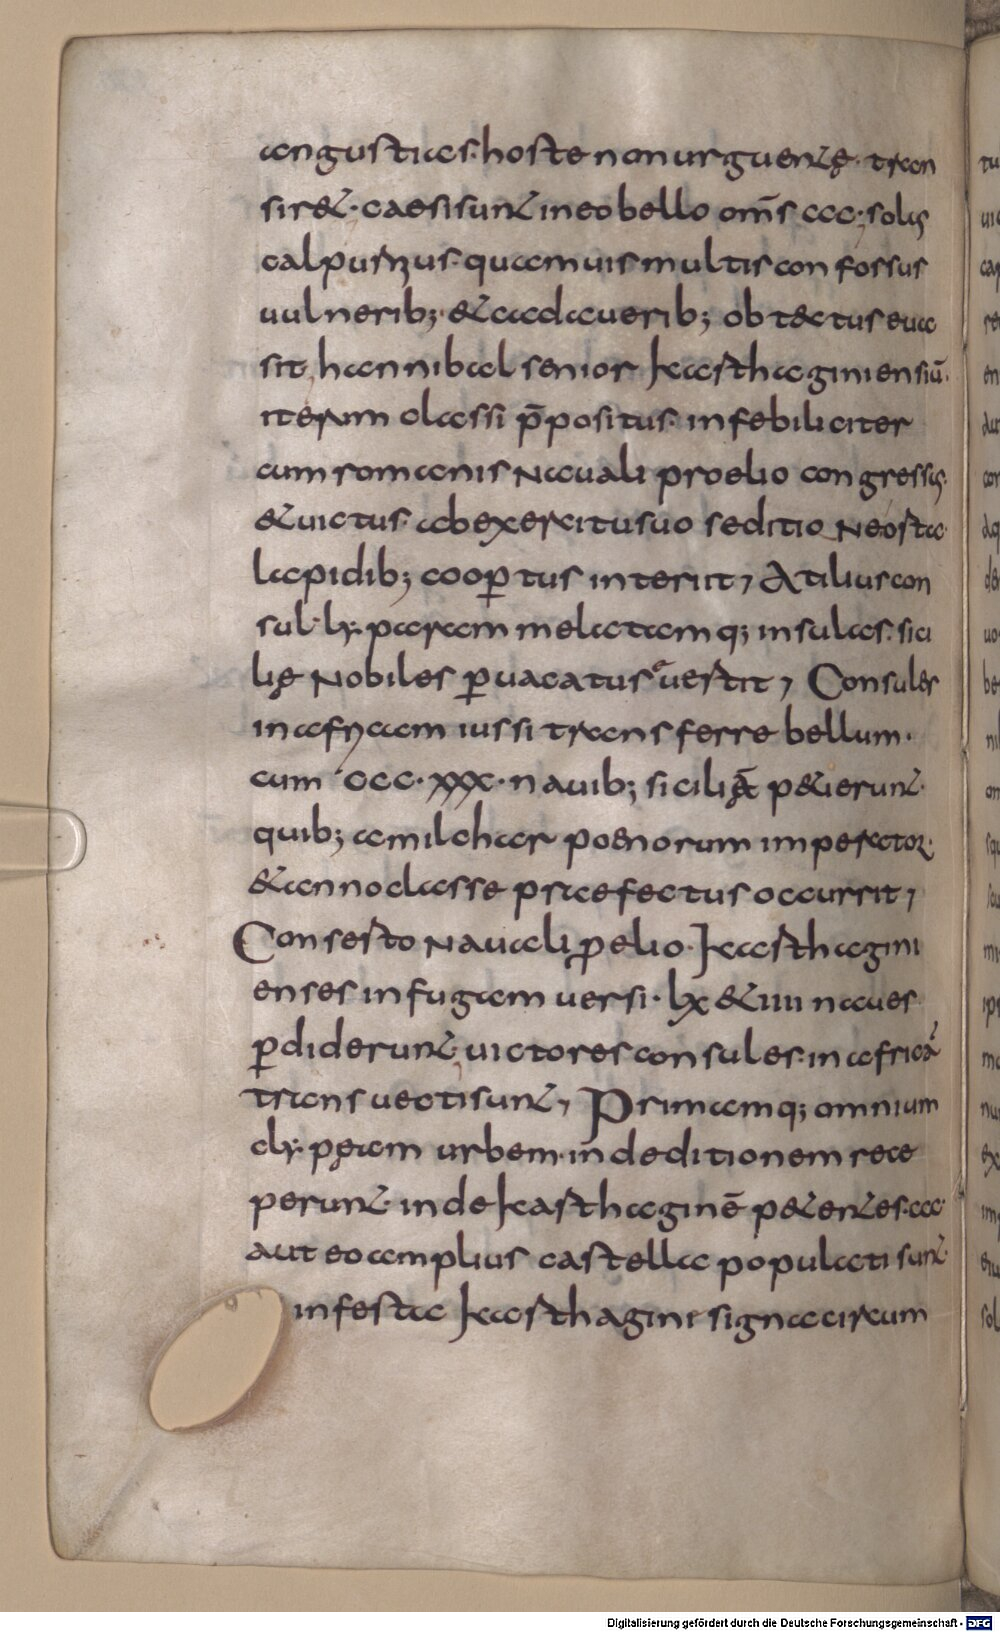 angustias. hoste non urguente. tran
siret. caesi sunt in eo bello om̄s ccc; solus
calpurnius. quamuis multis confossus
uulnerib; & cadaverib; obtectus eua
sit, hannibal senior karthaginiensiū.
iterum classi p̄positus. infebiliciter
cum romanis nauali proelio congressus.
& uictus. ab exercitu suo seditione osta
lapidib; coop̱tus interiit, Atilius con
sul. ly. param melatamq; insulas. sici
lię nobiles p̱uacatus euertit, Consules
in africam iussi transferre bellum.
cum ccc. xxx. nauib; siciliā petierunt.
quib; amilchar poenorum imperator.
& anno classe praefectus occurrit,
Conserto nauali p̱elio. karthagini
enses in fugam uersi. lx & iiii naues
p̱diderunt. uictores consules. in africā
transuecti sunt, Primamq; omnium
cly. peam urbem. in deditionem rece
perunt. inde karthaginē petentes. ccc.
aut eo amplius castella populati sunt.
infesta karthagini signa circum
Digitalisierung gefördert durch die Deutsche Forschungsgemeinschaft - DFG